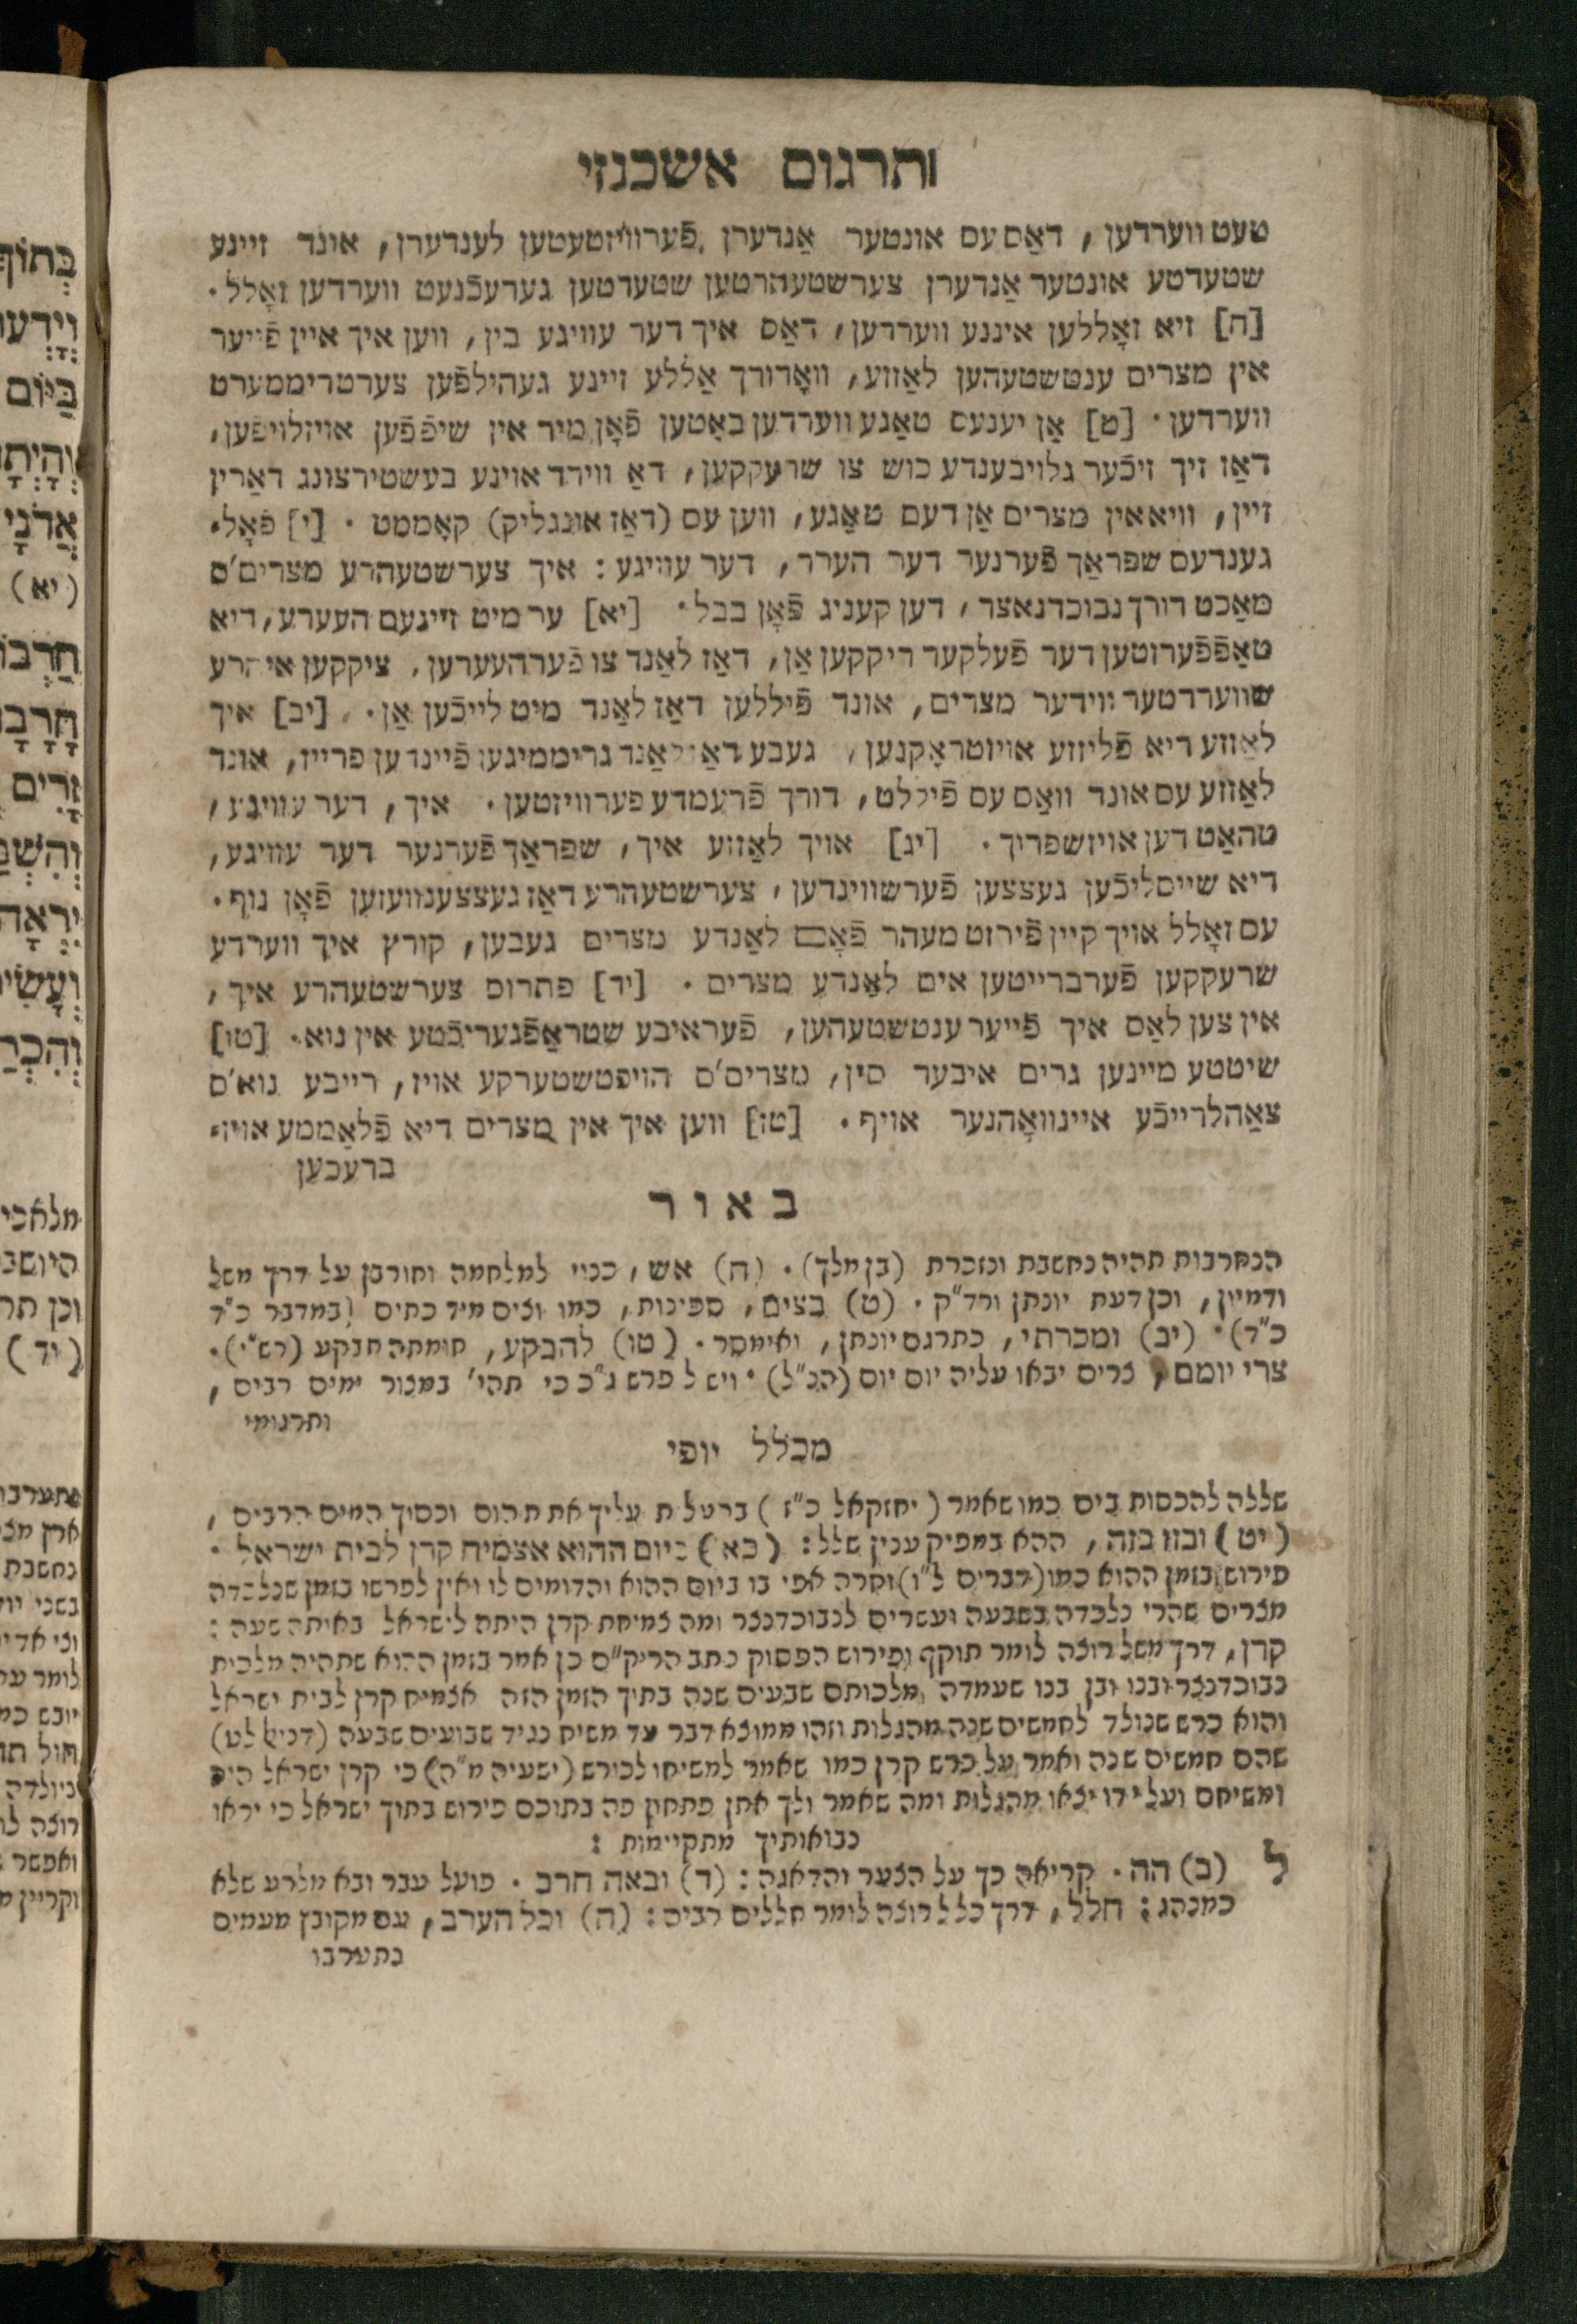 ותרגום אשכנזי
טעט ווערדען, דאַס עס אונטער אַנדערן פֿערוויזטעטען לענדערן, אונד זיינע
שטעדטע אונטער אַנדערן צערשטעהרטען שטעדטען גערעכֿנעט ווערדען זאָלל.
[ח] זיא זאָללען איננע ווערדען, דאַס איך דער עוויגע בין, ווען איך איין פֿייער
אין מצרים ענטשטעהען לאַזזע, וואָדורך אַללע זיינע געהילפֿען צערטריממערט
ווערדען. [ט] אַן יענעם טאַגע ווערדען באָטען פֿאָן מיר אין שיפֿפֿען אויזלויפֿען,
דאַז זיך זיכֿער גלויבענדע כוש צו שרעקקען, דאַ ווירד אוינע בעשטירצונג דאַרין
זיין, וויא אין מצרים אַן דעם טאַגע, ווען עס (דאַז אונגליק) קאָממט. [י] פֿאָל-
גענדעס שפראַך פֿערנער דער הערר, דער עוויגע: איך צערשטעהרע מצרים'ס
מאַכט דורך נבוכדנאצר, דען קעניג פֿאָן בבל. [יא] ער מיט זיינעם העערע, דיא
טאַפֿפֿערזטען דער פֿעלקער ריקקען אַן, דאַז לאַנד צו פֿערהעערען, ציקקען איהרע
שווערדטער ווידער מצרים, אונד פֿיללען דאַז לאַנד מיט לייכֿען אַן. [יב] איך
לאַזזע דיא פֿליזזע אויזטראָקנען, געבע דאַז לאַנד גריממיגען פֿיינדען פרייז, אונד
לאַזזע עס אונד וואַס עס פֿיללט, דורך פֿרעמדע פערוויזטען. איך, דער עוויגע,
טהאַט דען אויזשפריך. [יג] אויך לאַזזע איך, שפראַך פֿערנער דער עוויגע,
דיא שייסליכֿען געצצען פֿערשווינדען, צערשטעהרע דאַז געצצענוועזען פֿאָן נוף.
עס זאָלל אויך קיין פֿירזט מעהר פֿאָם לאַנדע מצרים געבען, קורץ איך ווערדע
שרעקקען פֿערברייטען אים לאַנדע מצרים. [יד] פתרוס צערשטעהרע איך,
אין צען לאַס איך פֿייער ענטשטעהען, פֿעראיבע שטראַפֿגעריכֿטע אין נוא. [טו]
שיטטע מיינען גרים איבער סין, מצרים'ס הויפטשטערקע אויז, רייבע נוא'ס
צאַהלרייכֿע איינוואָהנער אויף. [טז] ווען איך אין מצרים דיא פֿלאַממע אויז-
ברעכען
באור
הנחרבות תהיה נחשבת ונזכרת (בן מלך). (ח) אש, כנוי למלחמה וחורבן על דרך משל
ודמיון, וכן דעת יונתן ורד"ק. (ט) בצים, ספינות, כמו וצים מיד כתים (במדבר כ"ד
כ"ד). (יב) ומכרתי, כתרגם יונתן, ואימסר. (טו) להבקע, חומתה תבקע (רש"י).
צרי יומם, צרים יבאו עליה יום יום (הנ"ל). ויש לפרש ג"כ כי תהי' במצור ימים רבים,
ותרגומי
מכלל יופי
שללה להכסות בים כמו שאמר (יחזקאל כ"ז) בהעלות עליך את תהום וכסוך המים הרבים,
(יט) ובזז בזה, ההא במפיק ענין שלל: (כא) ביום ההוא אצמיח קרן לבית ישראל.
פירוש בזמן ההוא כמו (דברים ל"ו) וחרה אפי בו ביום ההוא והדומים לו ואין לפרשו בזמן שנלכדה
מצרים שהרי נלכדה בשבעה ועשרים לנבוכדנצר ומה צמיחת קרן היתה לישראל באיתה שעה:
קרן, דרך משל רוצה לומר תוקף ופירוש הפסוק כתב הריק"ם כן אמר בזמן ההוא שתהיה מלכות
נבוכדנצר ובנו ובן בנו שעמדה מלכותם שבעים שנה בתוך הזמן הזה אצמיח קרן לבית ישראל
והוא כרש שנולד לחמשים שנה מהגלות וזהו ממוצא דבר עד משיח נגיד שבועים שבעה (דניאל ט)
שהם חמשים שנה ואמר על כרש קרן כמו שאמר למשיחו לכורש (ישעיה מ"ה) כי קרן ישראל היה
ומשיחם ועל ידו יצאו מהגלות ומה שאמר ולך אתן פתחון פה בתוכם פירוש בתוך ישראל כי יראו
נבואותיך מתקיימות:
ל (ב) הה. קריאה כך על הצער והדאגה: (ד) ובאה חרב. פועל עבר ובא מלרע שלא
כמנהג: חלל, דרך כלל רוצה לומר חללים רבים: (ה) וכל הערב, עם מקובץ מעמים
נתערבו